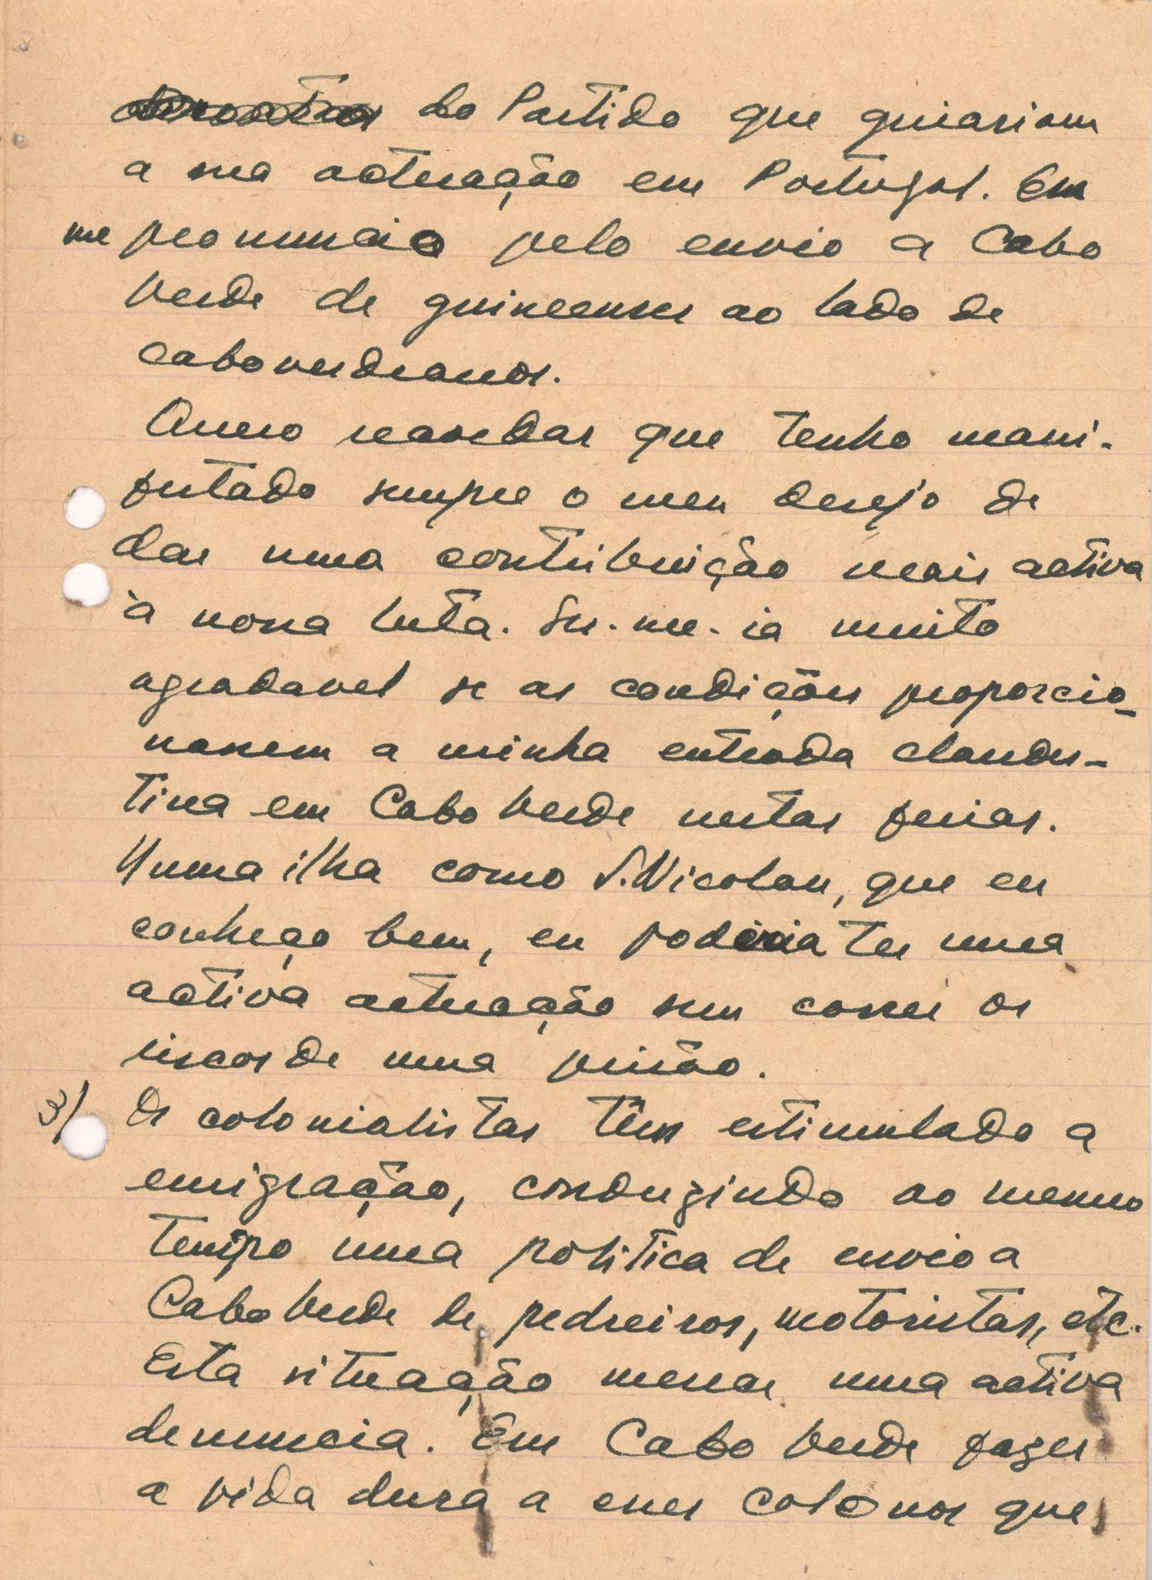 do Partido que guiariam
a sua actuação em Portugal. Eu
me pronuncio pelo envio a Cabo
Verde de guineenses ao lado de
caboverdeanos.
Quero recordar que tenho mani-
festado sempre o meu desejo de
dar uma contribuição mais activa
à nossa luta. Ser-me-ia muito
agradavel se as condições proporcio-
nassem a minha entrada clandes-
tina em Cabo Verde nestas ferias.
Numa ilha como S. Nicolau, que eu
conheço bem, eu poderia ter uma
activa actuação sem correr os
riscos de uma prisão.
3) Os colonialistas têm estimulado a
emigração, conduzindo ao mesmo
tempo uma politica de envio a
Cabo Verde de pedreiros, motoristas, etc.
Esta situação merece uma activa
denuncia. Em Cabo Verde fazer
a vida dura a esses colonos que